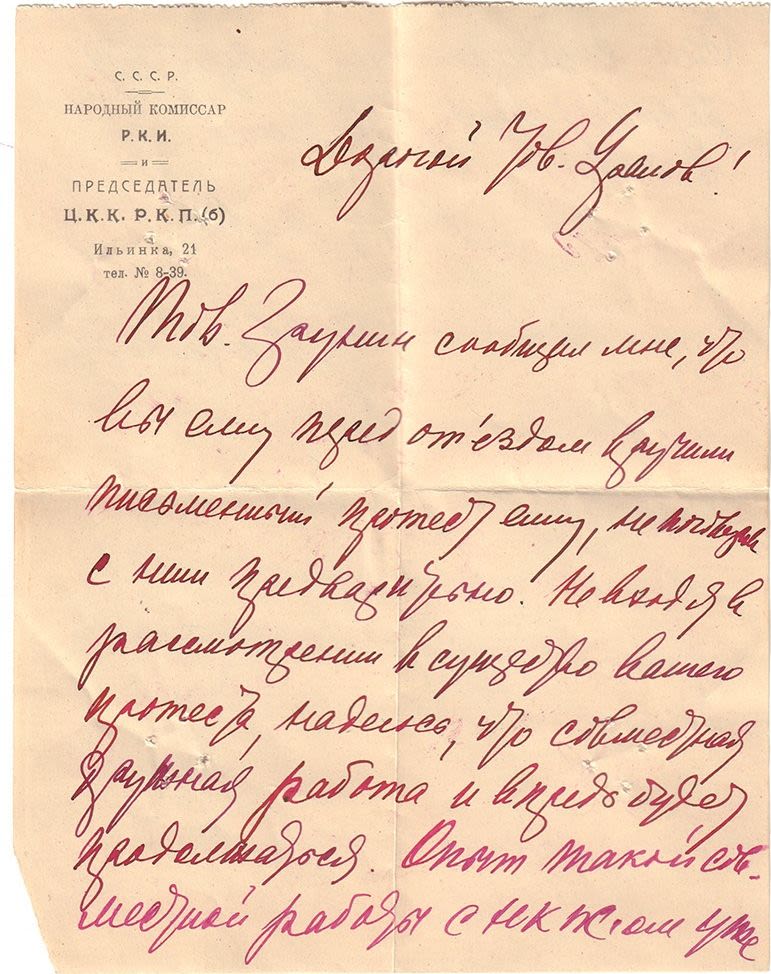 С. С. С. Р.
НАРОДНЫЙ КОМИССАР
Р. К. И.
и
ПРЕДСЕДАТЕЛЬ
Ц. К. К. Р. К. П. (б)
Ильинка, 21
тел. № 8-39.
Дорогой Тов.
Тов. сообщил мне, что
Вы ему перед от'ездом вручили
письменный протест ему, не
с ним предварительно. Не входя в
рассмотрении в существо вашего
протеста, надеюсь, что совместная
дружная работа и впредь будет
продолжаться. Опыт такой сов-
местной работы с уже